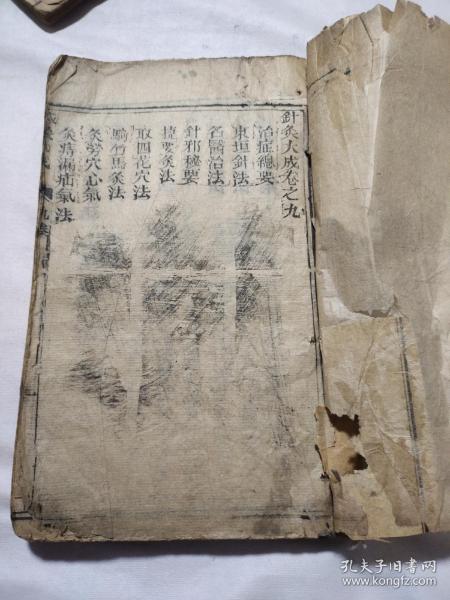 針灸大成卷之九
治症總要
東垣針法
名醫治法
針邪秘要
捷要灸法
取四花穴法
騎竹馬灸法
灸勞穴心氣
灸痔漏疝氣法
孔夫子旧书网
www.kongfz.com